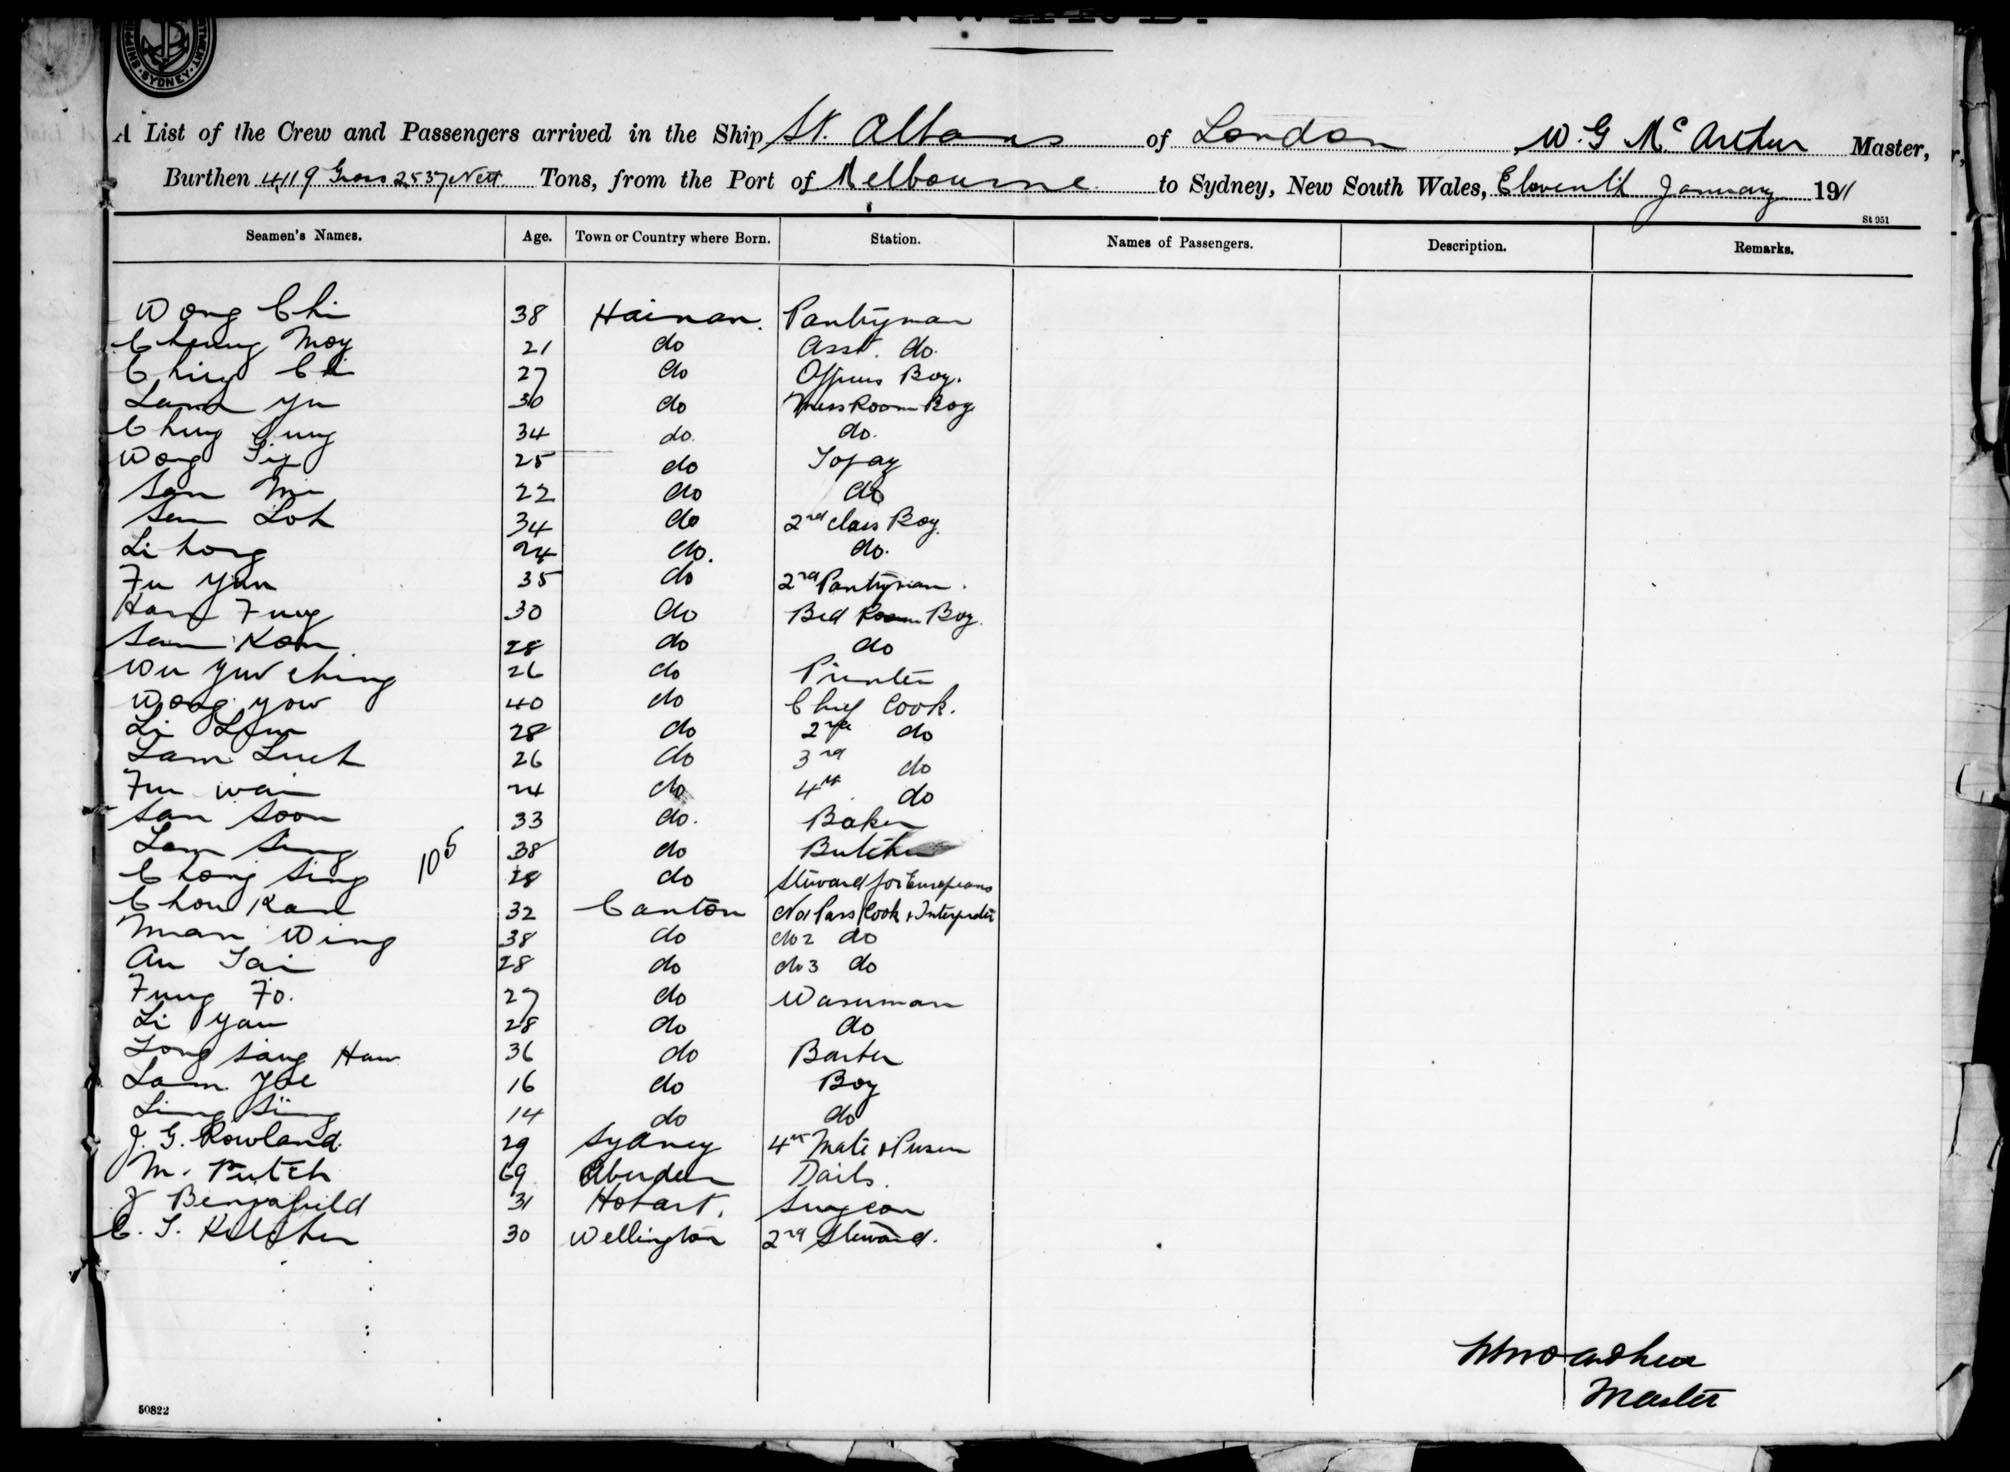 SYDNEY
A List of the Crew and Passengers arrived in the Ship St. Albans of London W. G McArthur Master,
Burthen 4119 Gross 2537 Nett Tons, from the Port of Melbourne to Sydney, New South Wales, Eleventh January 1911
St 951
Seamen's Names. Age. Town or Country where Born. Station. Names of Passengers. Description. Remarks.
Wong Chi 38 Hainan. Pantryman
Cheung Moy 21 do Asst. do.
27 do Officers Boy.
Lam Yu 30 do Mess Room Boy
34 do. do.
Wong 25 do Topaz
San 22 do do
Sem Loh 34 do 2nd Class Boy.
Li hong 24 do. do.
Fu Yan 35 do 2nd Pantryman.
Han Fung 30 do Bed Room Boy.
Sam Kon 28 do do
Wu Yuw Ching 26 do Printer
Wong Yow 40 do Chief Cook.
Li 28 do 2nd do
Lam Luck 26 do 3rd do
Fu Wai 24 do 4th do
San Soon 33 do. Baker
Lam Sing 38 do Butcher
105
Chong Sing 28 do Steward for Europeans
Chou Kan 32 Canton No 1 Pass Cook & Interpreter
Man Wing 38 do do 2 do
Au Tai 28 do do 3 do
Fung Fo. 27 do
Li Yau 28 do do
Tong Sang Haw 36 do
Lam 16 do Boy
14 do do
J. G. Rowland. 29 Sydney 4th Mate & Purser
M. 69 Aberdeen
J Bennafield 31 Hobart. Surgeon
C. T. 30 Wellington 2nd Steward.
Master
50822